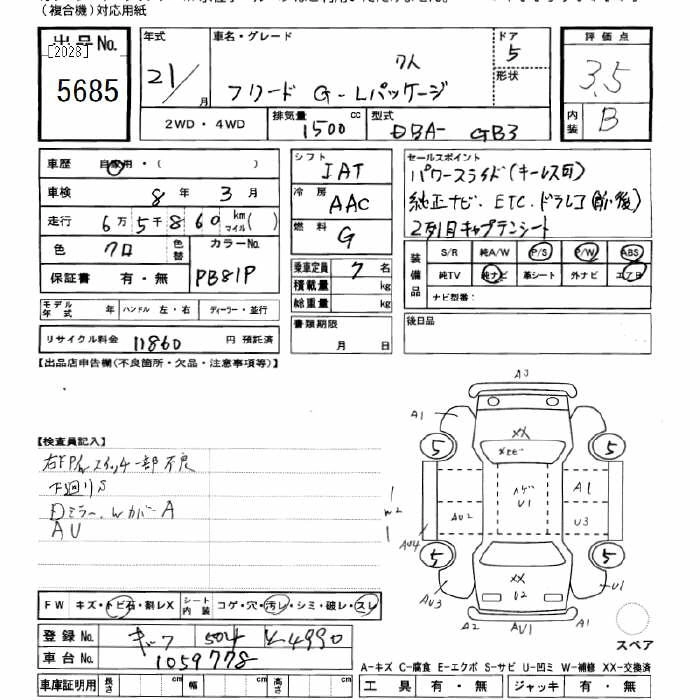 (複合機)対応用紙
出品No.
[2028]
5685
年式
21/
月
車名・グレード
7人
フリード G-Lパッケージ
ドア
5
形状
2WD・4WD
排気量
1500 cc
型式
DBA- GB3
評価点
3.5
内装
B
車歴 自家用・( )
車検 8年 3月
走行 6万5千860 km マイル( )
色 クロ 色替 カラーNo.
保証書 有・無 PB81P
モデル年式 年 ハンドル 左・右 ディーラー・並行
リサイクル料金 11860 円 預託済
シフト
IAT
冷房
AAC
燃料
G
乗車定員 7 名
積載量 kg
総重量 kg
書類期限
月 日
セールスポイント
パワースライド(キーレス可)
純正ナビ、ETC、ドラレコ(前後)
2列目キャプテンシート
装備品
S/R 純A/W P/S P/W ABS
純TV 純ナビ 革シート 外ナビ エアB
ナビ型番:
後日品
【出品店申告欄(不良箇所・欠品・注意事項等)】
【検査員記入】
右FP/wスイッチ一部不良
下廻りS
Dミラー、Wカバー A
AU
FW キズ・トビ石・割レX シート内装 コゲ・穴・汚レ・シミ・破レ・スレ
登録No. 504 4990
車台No. 1059778
車庫証明用 長さ cm 幅 cm 高さ cm
A3
A1
XX
5
5
ハゲ
U1
A1
W2
AU2
U3
AU4
5
5
XX
U2
AU3
U1
A2
AU1
A2
スペア
A-キズ C-腐食 E-エクボ S-サビ U-凹ミ W-補修 XX-交換済
工具 有・無 ジャッキ 有・無